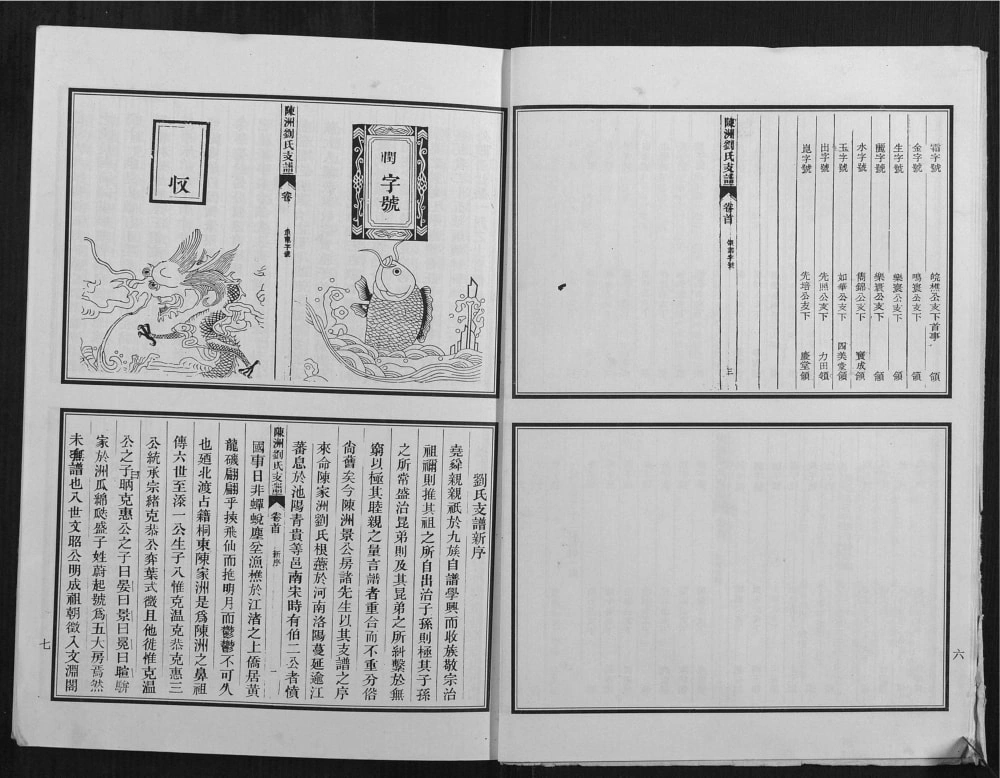 霜字號 皖樵公支下首事 領
金字號 鳴寰公支下 領
生字號 樂寰公支下 領
麗字號 樂寰公支下 領
水字號 衡錦公支下 寶成領
玉字號 如華公支下 四美堂領
出字號 先照公支下 力田領
崑字號 先培公支下 慶堂領
陳洲劉氏支譜 卷首 領譜字號 三
六
閏字號
陳洲劉氏支譜 卷 字號
收
劉氏支譜新序
堯舜親親祇於九族自譜學興而收族敬宗治
祖禰則推其祖之所自出治子孫則極其子孫
之所常盛治昆弟則及其昆弟之所糾繫於無
窮以極其睦親之量言譜者重合而不重分俗
尙舊矣今陳洲景公房諸先生以其支譜之序
來命陳家洲劉氏根蘊於河南洛陽蔓延逾江
蕃息於池陽青貴等邑南宋時有伯二公者憤
國事日非蟬蛻塵坌漁樵於江渚之上僑居黃
陳洲劉氏支譜 卷首 新序 一
龍磯翩翩乎挾飛仙而抱明月而鬱鬱不可久
也廼北渡占籍桐東陳家洲是爲陳洲之鼻祖
傳六世至添一公生子八惟克温克恭克惠三
公統承宗緒克恭公弈葉式微且他徙惟克温
公之子曰昞克惠公之子曰晏曰景曰冕曰暄駢
家於洲瓜綿瓞盛子姓蔚起號爲五大房焉然
未譜也八世文昭公明成祖朝徵入文淵閣
七